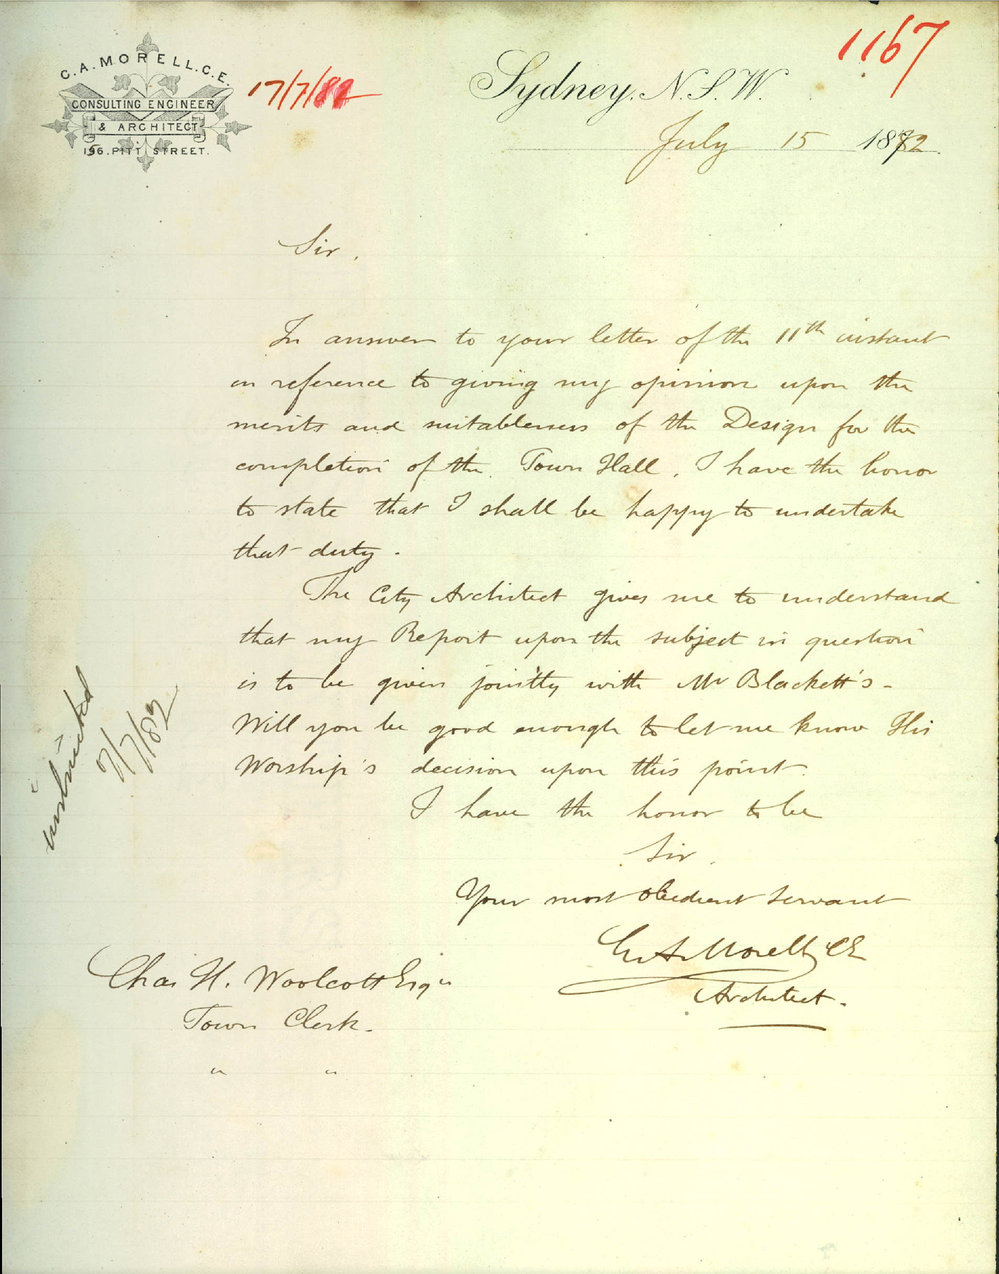 C. A. MORELL. C. E.
CONSULTING ENGINEER
& ARCHITECT
196. PITT STREET.
17/7/82
1167
Sydney, N. S. W.
July 15 1882
Sir,
In answer to your letter of the 11th instant
in reference to giving my opinion upon the
merits and suitableness of the Design for the
completion of the Town Hall, I have the honor
to state that I shall be happy to undertake
that duty.
The City Architect gives me to understand
that my Report upon the subject in question
is to be given jointly with Mr Blackett's -
Will you be good enough to let me know His
Worship's decision upon this point.
I have the honor to be
Sir,
Your most obedient servant
C. A. Morell, CE
Architect.
Chas H. Woolcott Esqre
Town Clerk.
" "
instructed
17/7/82